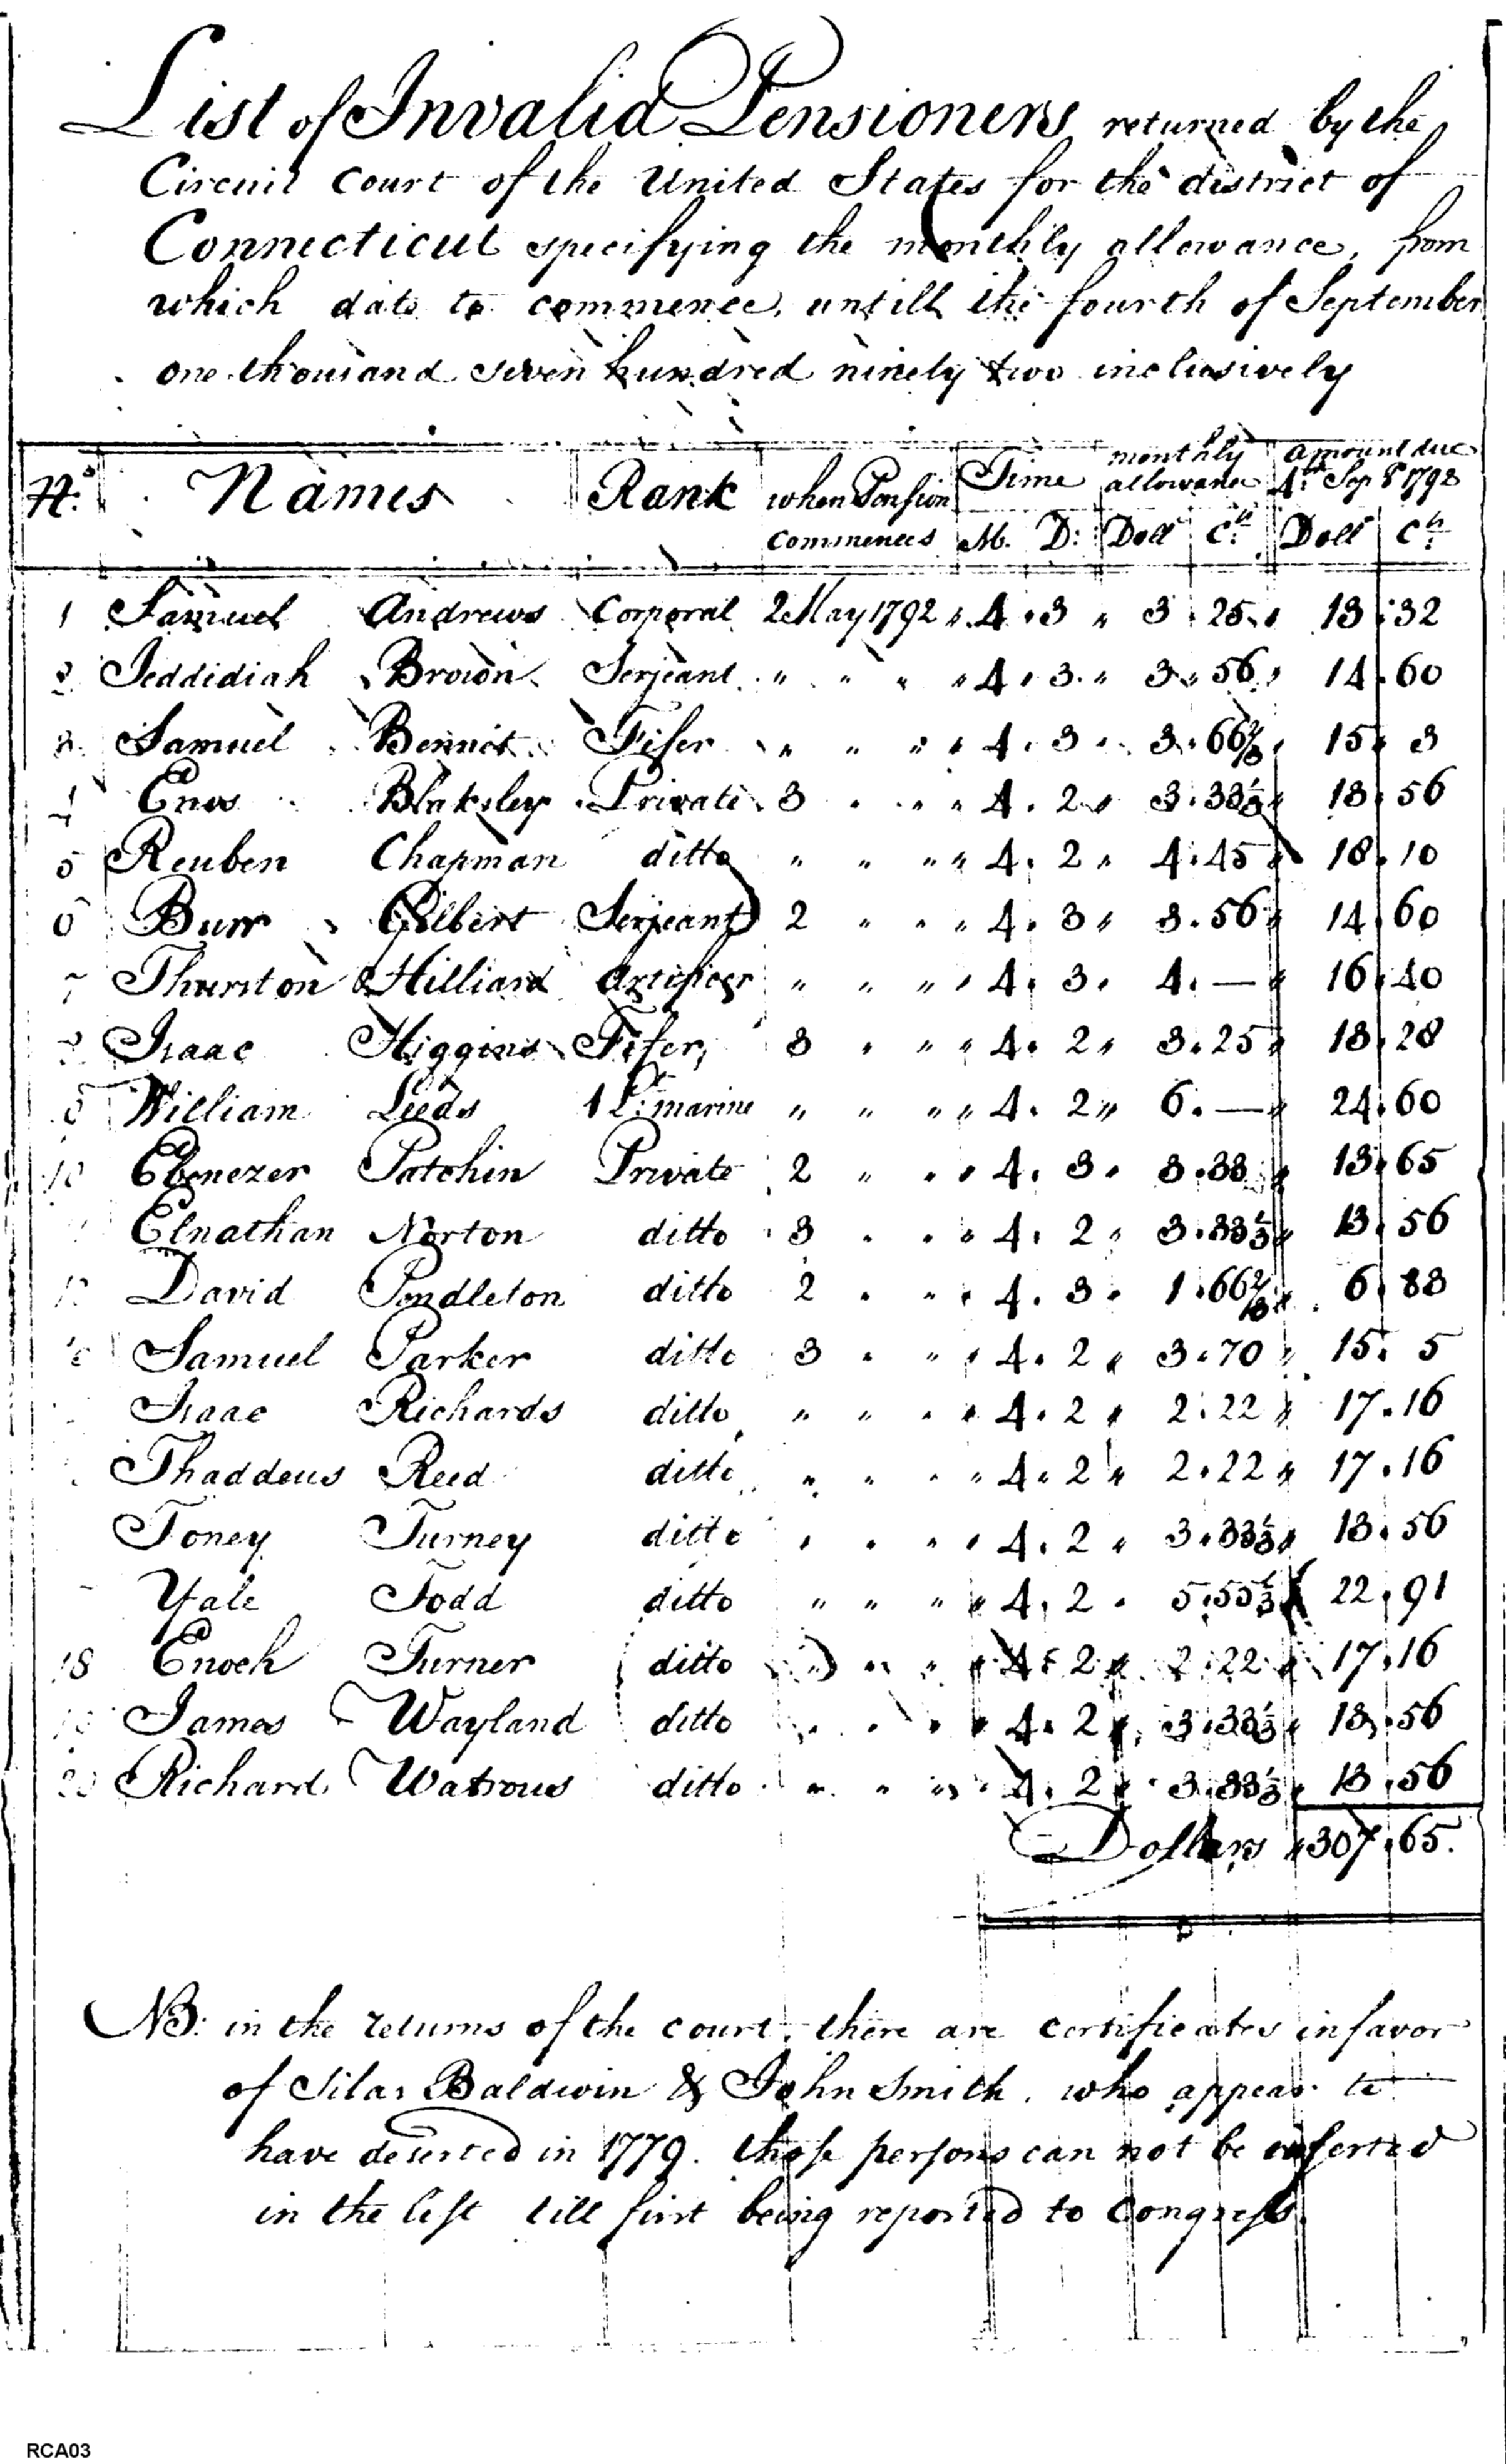 List of Invalid Pensioners returned by the
Circuit Court of the United States for the district of
Connecticut specifying the monthly allowance, from
which date to commence, untill the fourth of September
one thousand seven hundred ninety two inclusively
No. Names Rank when Pension Commences Time M. D: monthly allowance Doll Cts amount due 4th Sep 1792 Doll Cts
1 Samuel Andrews Corporal 2 May 1792 " 4 . 3 " 3 . 25 " 13 . 32
2 Jeddidiah Brown Serjeant " " " " 4 . 3 . " 3 . 56 " 14 . 60
3 Samuel Bennet Fifer " " " " 4 . 3 . 3 . 66 2/3 " 15 . 3
4 Enos Blaksley Private 3 " " " 4 . 2 " 3 . 33 1/3 " 13 . 56
5 Reuben Chapman ditto " " " " 4 . 2 " 4 . 45 " 18 . 10
6 Burr Gilbert Serjeant 2 " " " 4 . 3 " 3 . 56 " 14 . 60
7 Thurston Hilliard Artificer " " " " 4 . 3 . 4 . — " 16 . 40
8 Isaac Higgins Fifer, 3 " " " 4 . 2 " 3 . 25 " 13 . 28
William Leeds 1 Lt. marine " " " " 4 . 2 " 6 . — " 24 . 60
10 Ebenezer Patchin Private 2 " " " 4 . 3 . 3 . 33 " 13 . 65
Elnathan Norton ditto 3 . . " 4 . 2 " 3 . 33 1/3 " 13 . 56
12 David Pendleton ditto 2 . " " 4 . 3 . 1 . 66 2/3 " 6 . 83
Samuel Parker ditto 3 . " " 4 . 2 " 3 . 70 " 15 . 5
Isaac Richards ditto " " . " 4 . 2 " 2 . 22 " 17 . 16
Thaddeus Reed ditto " " . " 4 . 2 " 2 . 22 " 17 . 16
Toney Turney ditto " . " " 4 . 2 " 3 . 33 1/3 " 13 . 56
Yale Todd ditto " " " " 4 . 2 . 5 . 55 1/3 22 . 91
18 Enoch Turner ditto " " " " 4 . 2 " 2 . 22 " 17 . 16
James Wayland ditto " . " " 4 . 2 " 3 . 33 1/3 " 13 . 56
20 Richard Watrous ditto " " " " 4 . 2 " 3 . 33 1/3 " 13 . 56
Dollars " 307 . 65.
NB: in the returns of the court, there are certificates in favor
of Silas Baldwin & John Smith. who appear to
have deserted in 1779. those persons can not be inserted
in the list till first being reported to Congress.
RCA03